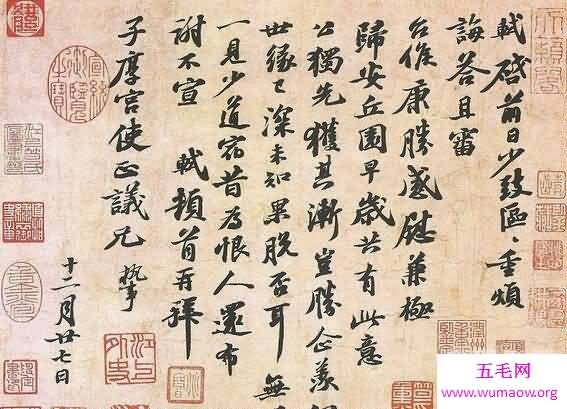 軾啓前日少致區區重煩
誨答且審
台候康勝感慰兼極
歸安丘園早歲共有此意
公獨先獲其漸豈勝企羨
世緣已深未知果脫否耳 無
一見少道宿昔為恨人還布
謝不宣 軾頓首再拜
子厚宮使正議兄 執事
十二月廿七日
天籟閣
江上外史
五毛网
www.wumaow.org